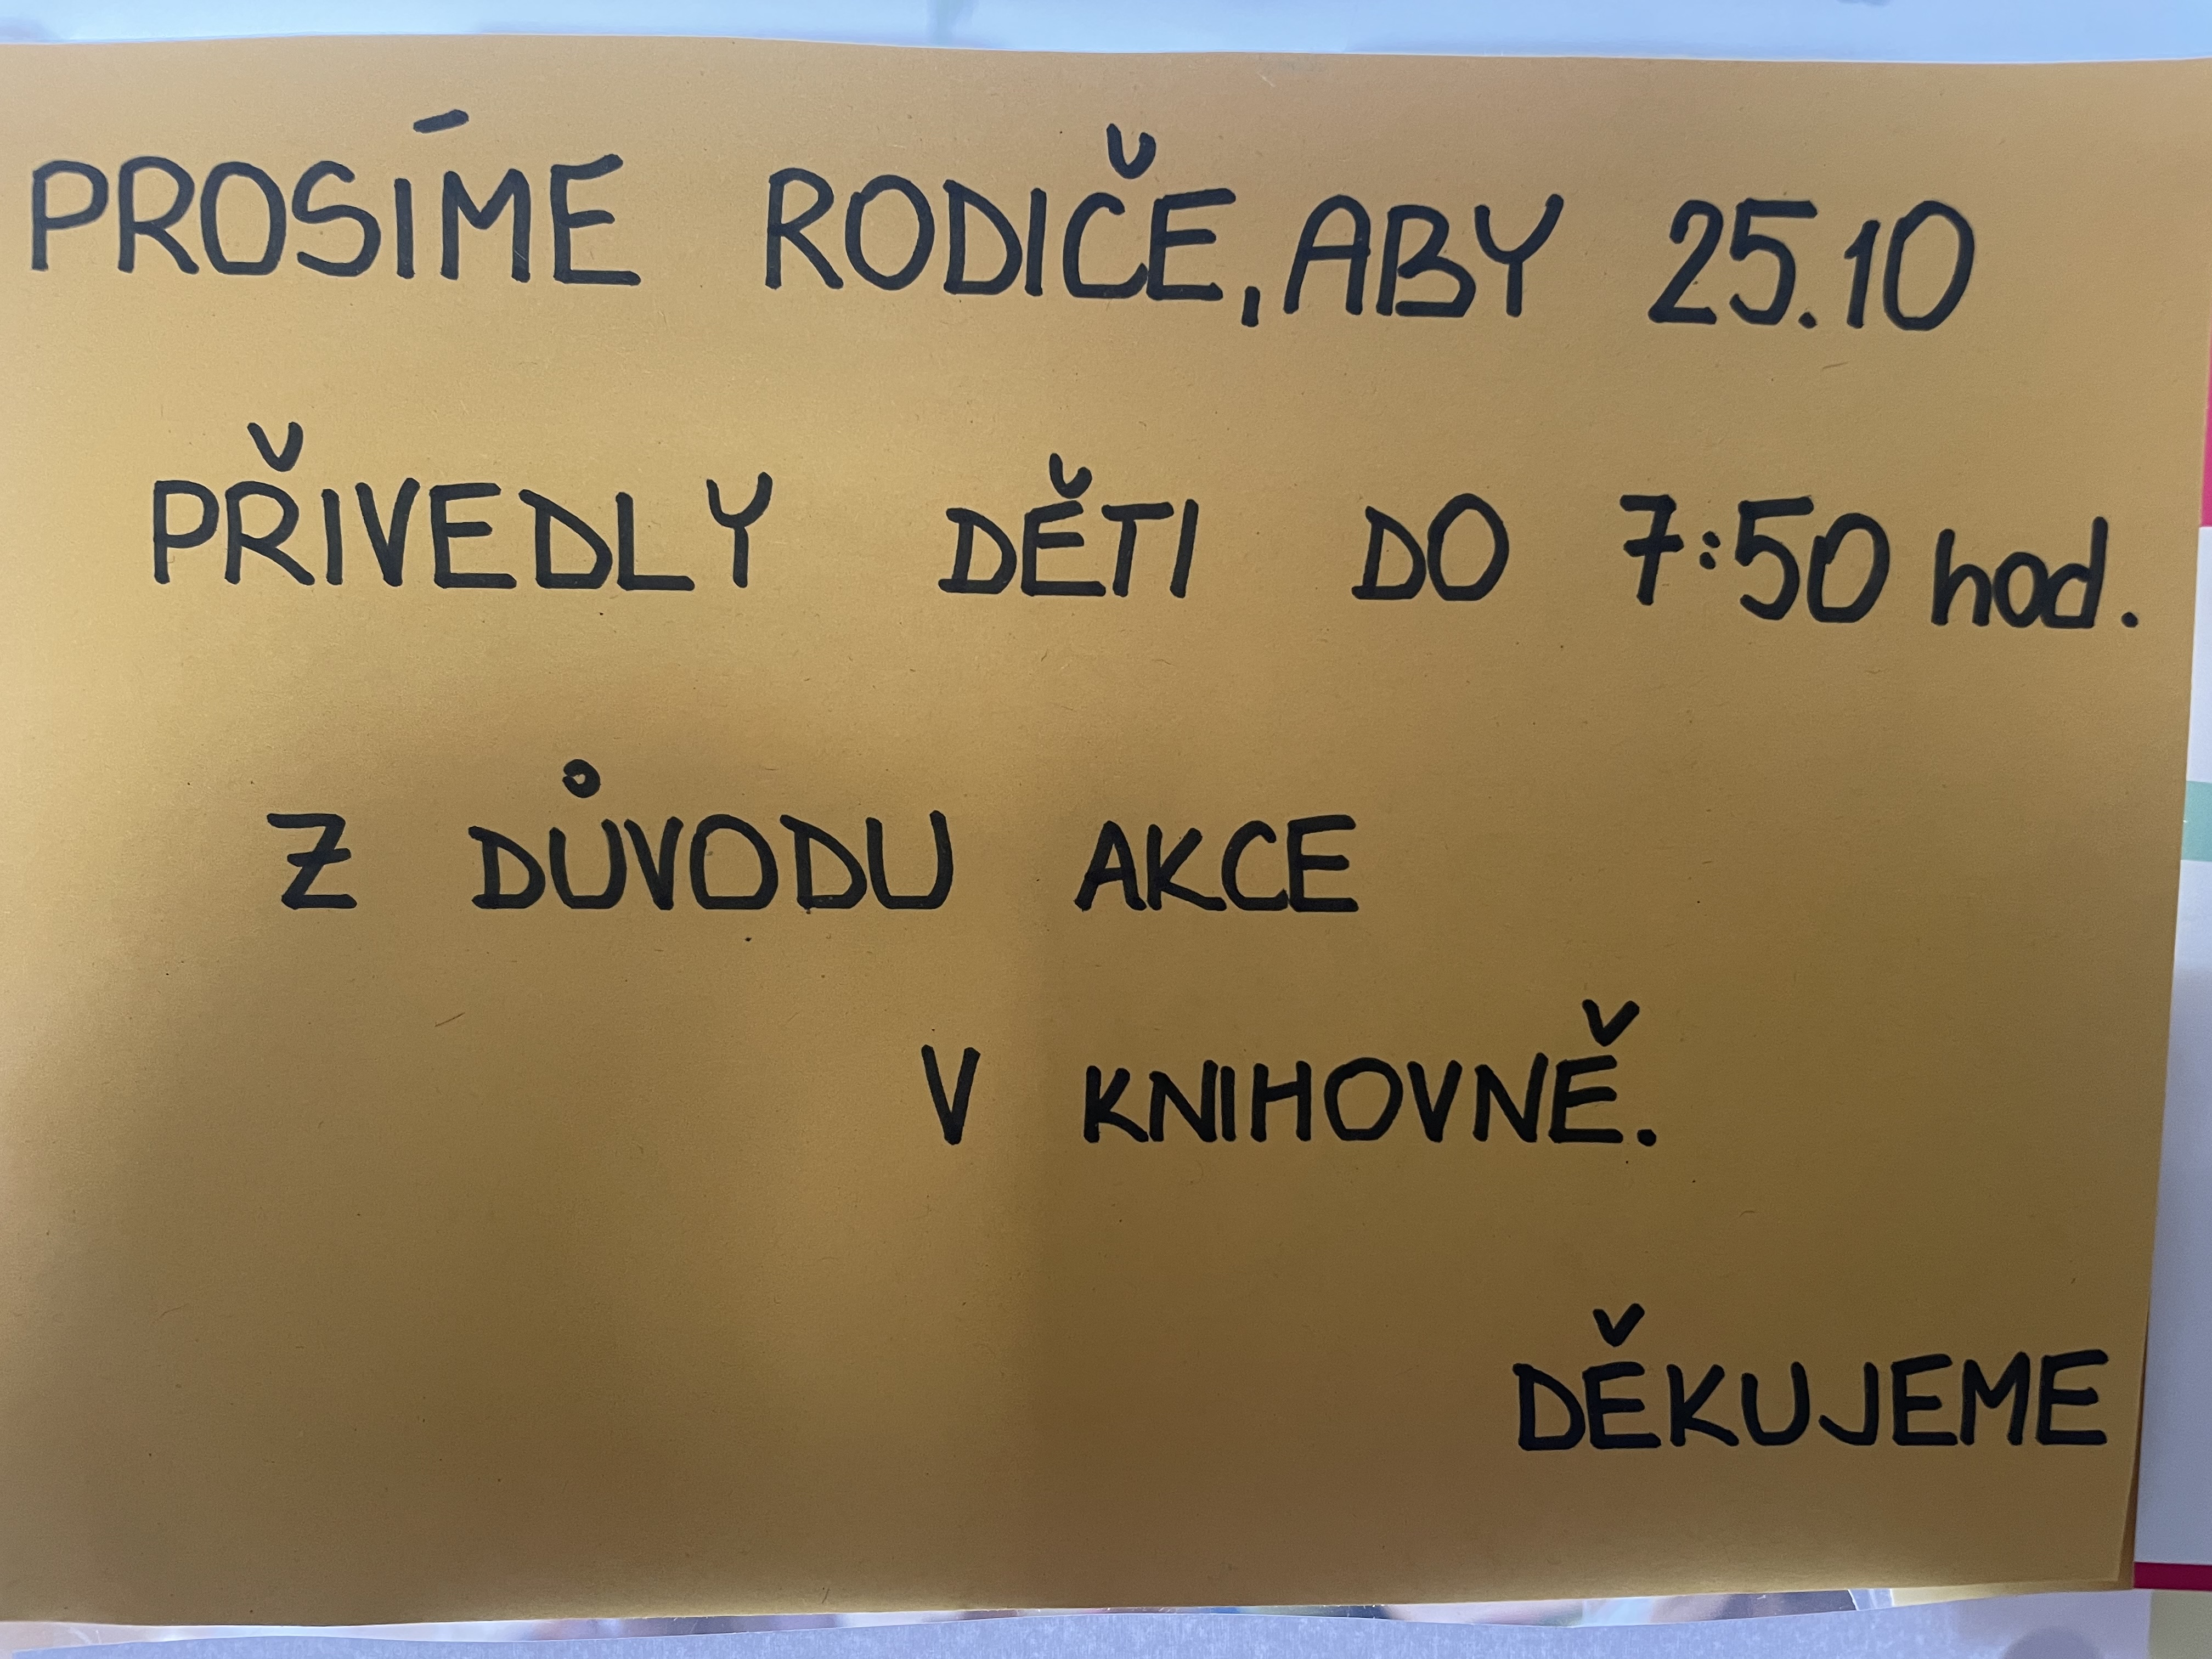 PROSÍME RODIČE, ABY 25.10
PŘIVEDLY DĚTI DO 7:50 hod.
Z DŮVODU AKCE
V KNIHOVNĚ.
DĚKUJEME